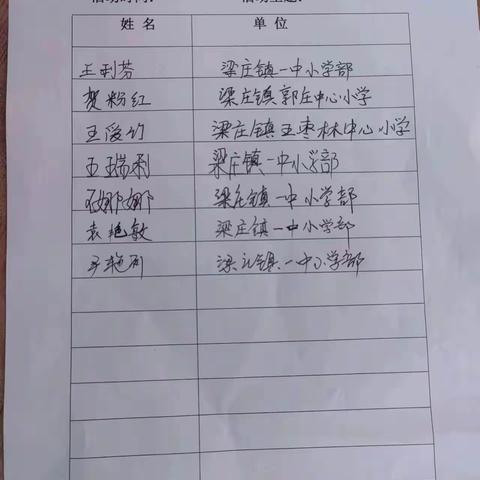 活动时间： 活动主题：
姓名 单位
王利芬 梁庄镇一中小学部
贺粉红 梁庄镇郭庄中心小学
王爱竹 梁庄镇王枣林中心小学
王瑞利 梁庄镇一中小学部
娜娜 梁庄镇一中小学部
袁艳敏 梁庄镇一中小学部
艳 梁庄镇一中小学部